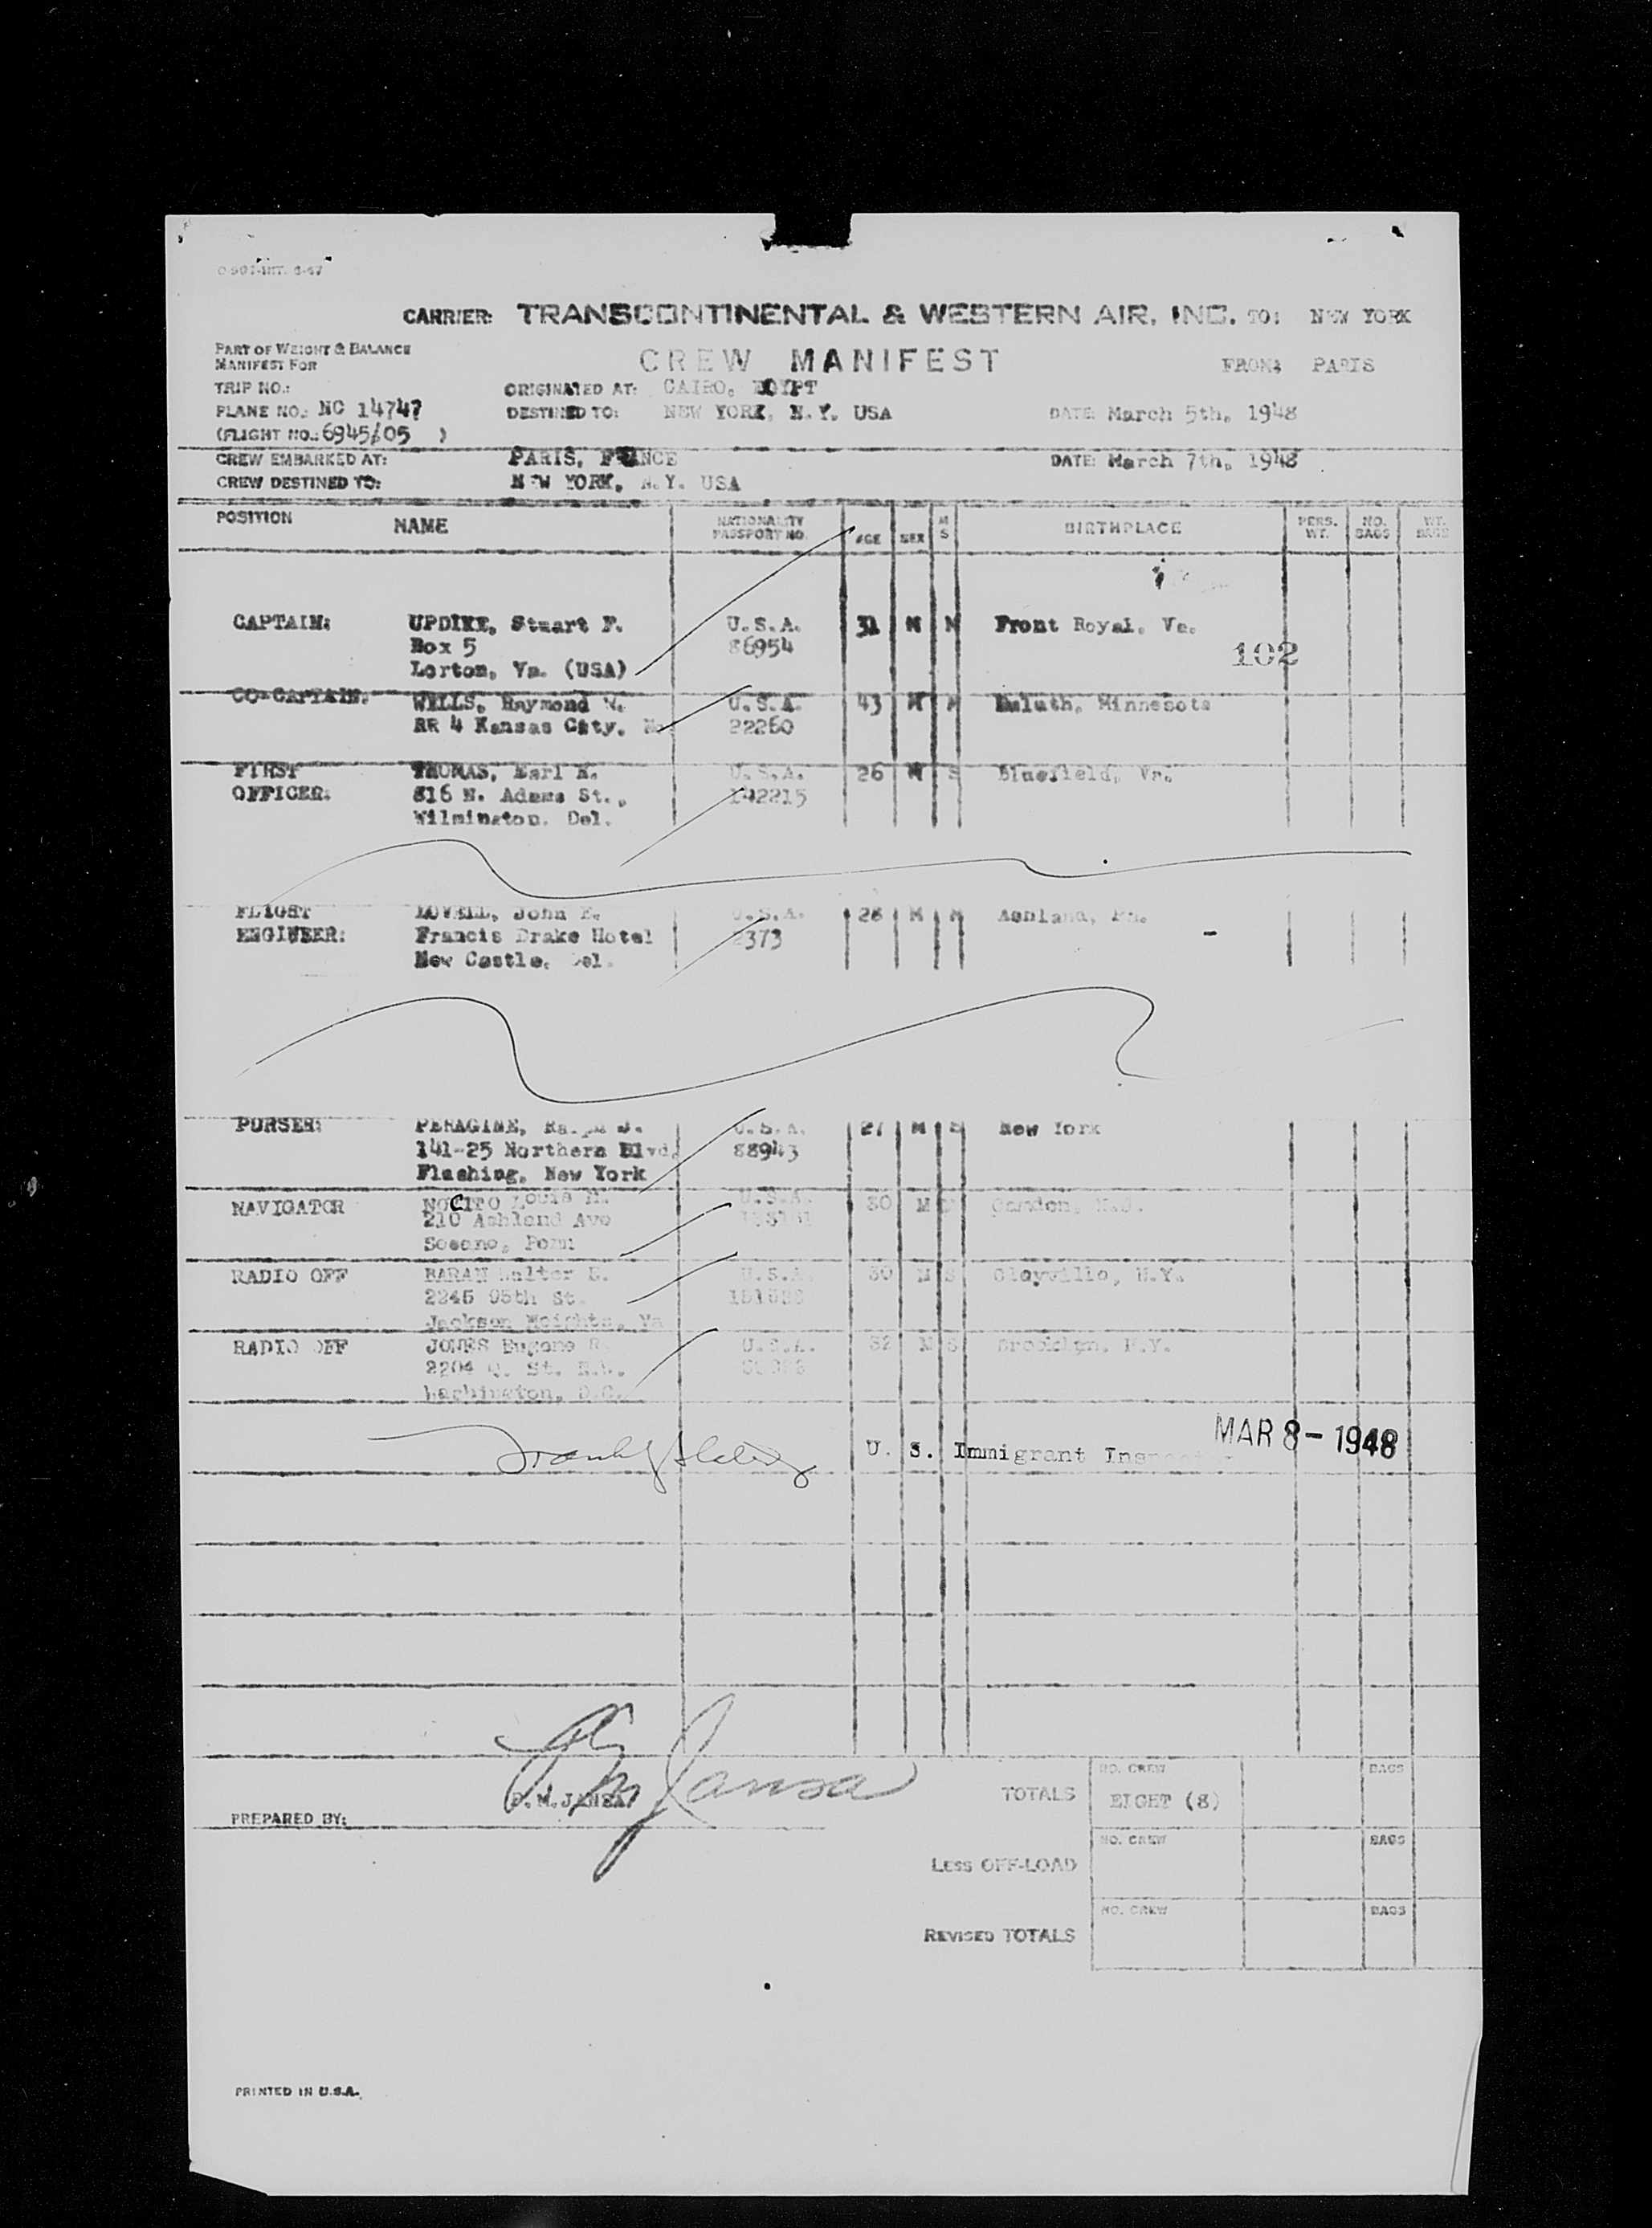 CARRIER: TRANSCONTINENTAL & WESTERN AIR, INC. TO: NEW YORK
PART OF WEIGHT & BALANCE
MANIFEST FOR
CREW MANIFEST FROM: PARIS
TRIP NO.: ORIGINATED AT: CAIRO, EGYPT
PLANE NO.: NC 14747 DESTINED TO: NEW YORK, N.Y. USA DATE: March 5th, 1948
(FLIGHT NO.: 6945/05 )
CREW EMBARKED AT: PARIS, FRANCE DATE: March 7th, 1948
CREW DESTINED TO: NEW YORK, N.Y. USA
POSITION NAME NATIONALITY PASSPORT NO. AGE SEX M S BIRTHPLACE PERS. WT. NO. BAGS WT. BAGS
CAPTAIN: UPDIKE, Stuart F. U.S.A. 31 M M Front Royal, Va.
Box 5 86954 102
Lorton, Va. (USA)
CO-CAPTAIN: WELLS, Raymond U.S.A. 43 M M Duluth, Minnesota
RR 4 Kansas City, 22260
FIRST THOMAS, Earl K. U.S.A. 26 M S Bluefield, Va.
OFFICER: 816 N. Adams St., 142215
Wilmington. Del.
FLIGHT LOVELL, John U.S.A. 28 M M Ashland,
ENGINEER: Francis Drake Hotel 2373
New Castle, Del.
PURSER: PERAGINE, Ralph J. U.S.A. 27 M S New York
141-25 Northern Blvd. 88943
Flushing, New York
NAVIGATOR NOCITO Louis U.S.A. 30 M Camden, N.J.
210 Ashland Ave
Penn:
RADIO OFF BARAN Walter U.S.A. 30 M S Clayville, N.Y.
2245 95th St.
Jackson Heights,
RADIO OFF JONES Eugene R. U.S.A. 32 M S Brooklyn, N.Y.
2204 Q. St.
Washington, D.C.
U. S. Immigrant MAR 8 - 1948
P. M. Jansa
PREPARED BY: P.M. JANSA
TOTALS NO. CREW EIGHT (8) BAGS
LESS OFF-LOAD NO. CREW BAGS
REVISED TOTALS NO. CREW BAGS
PRINTED IN U.S.A.